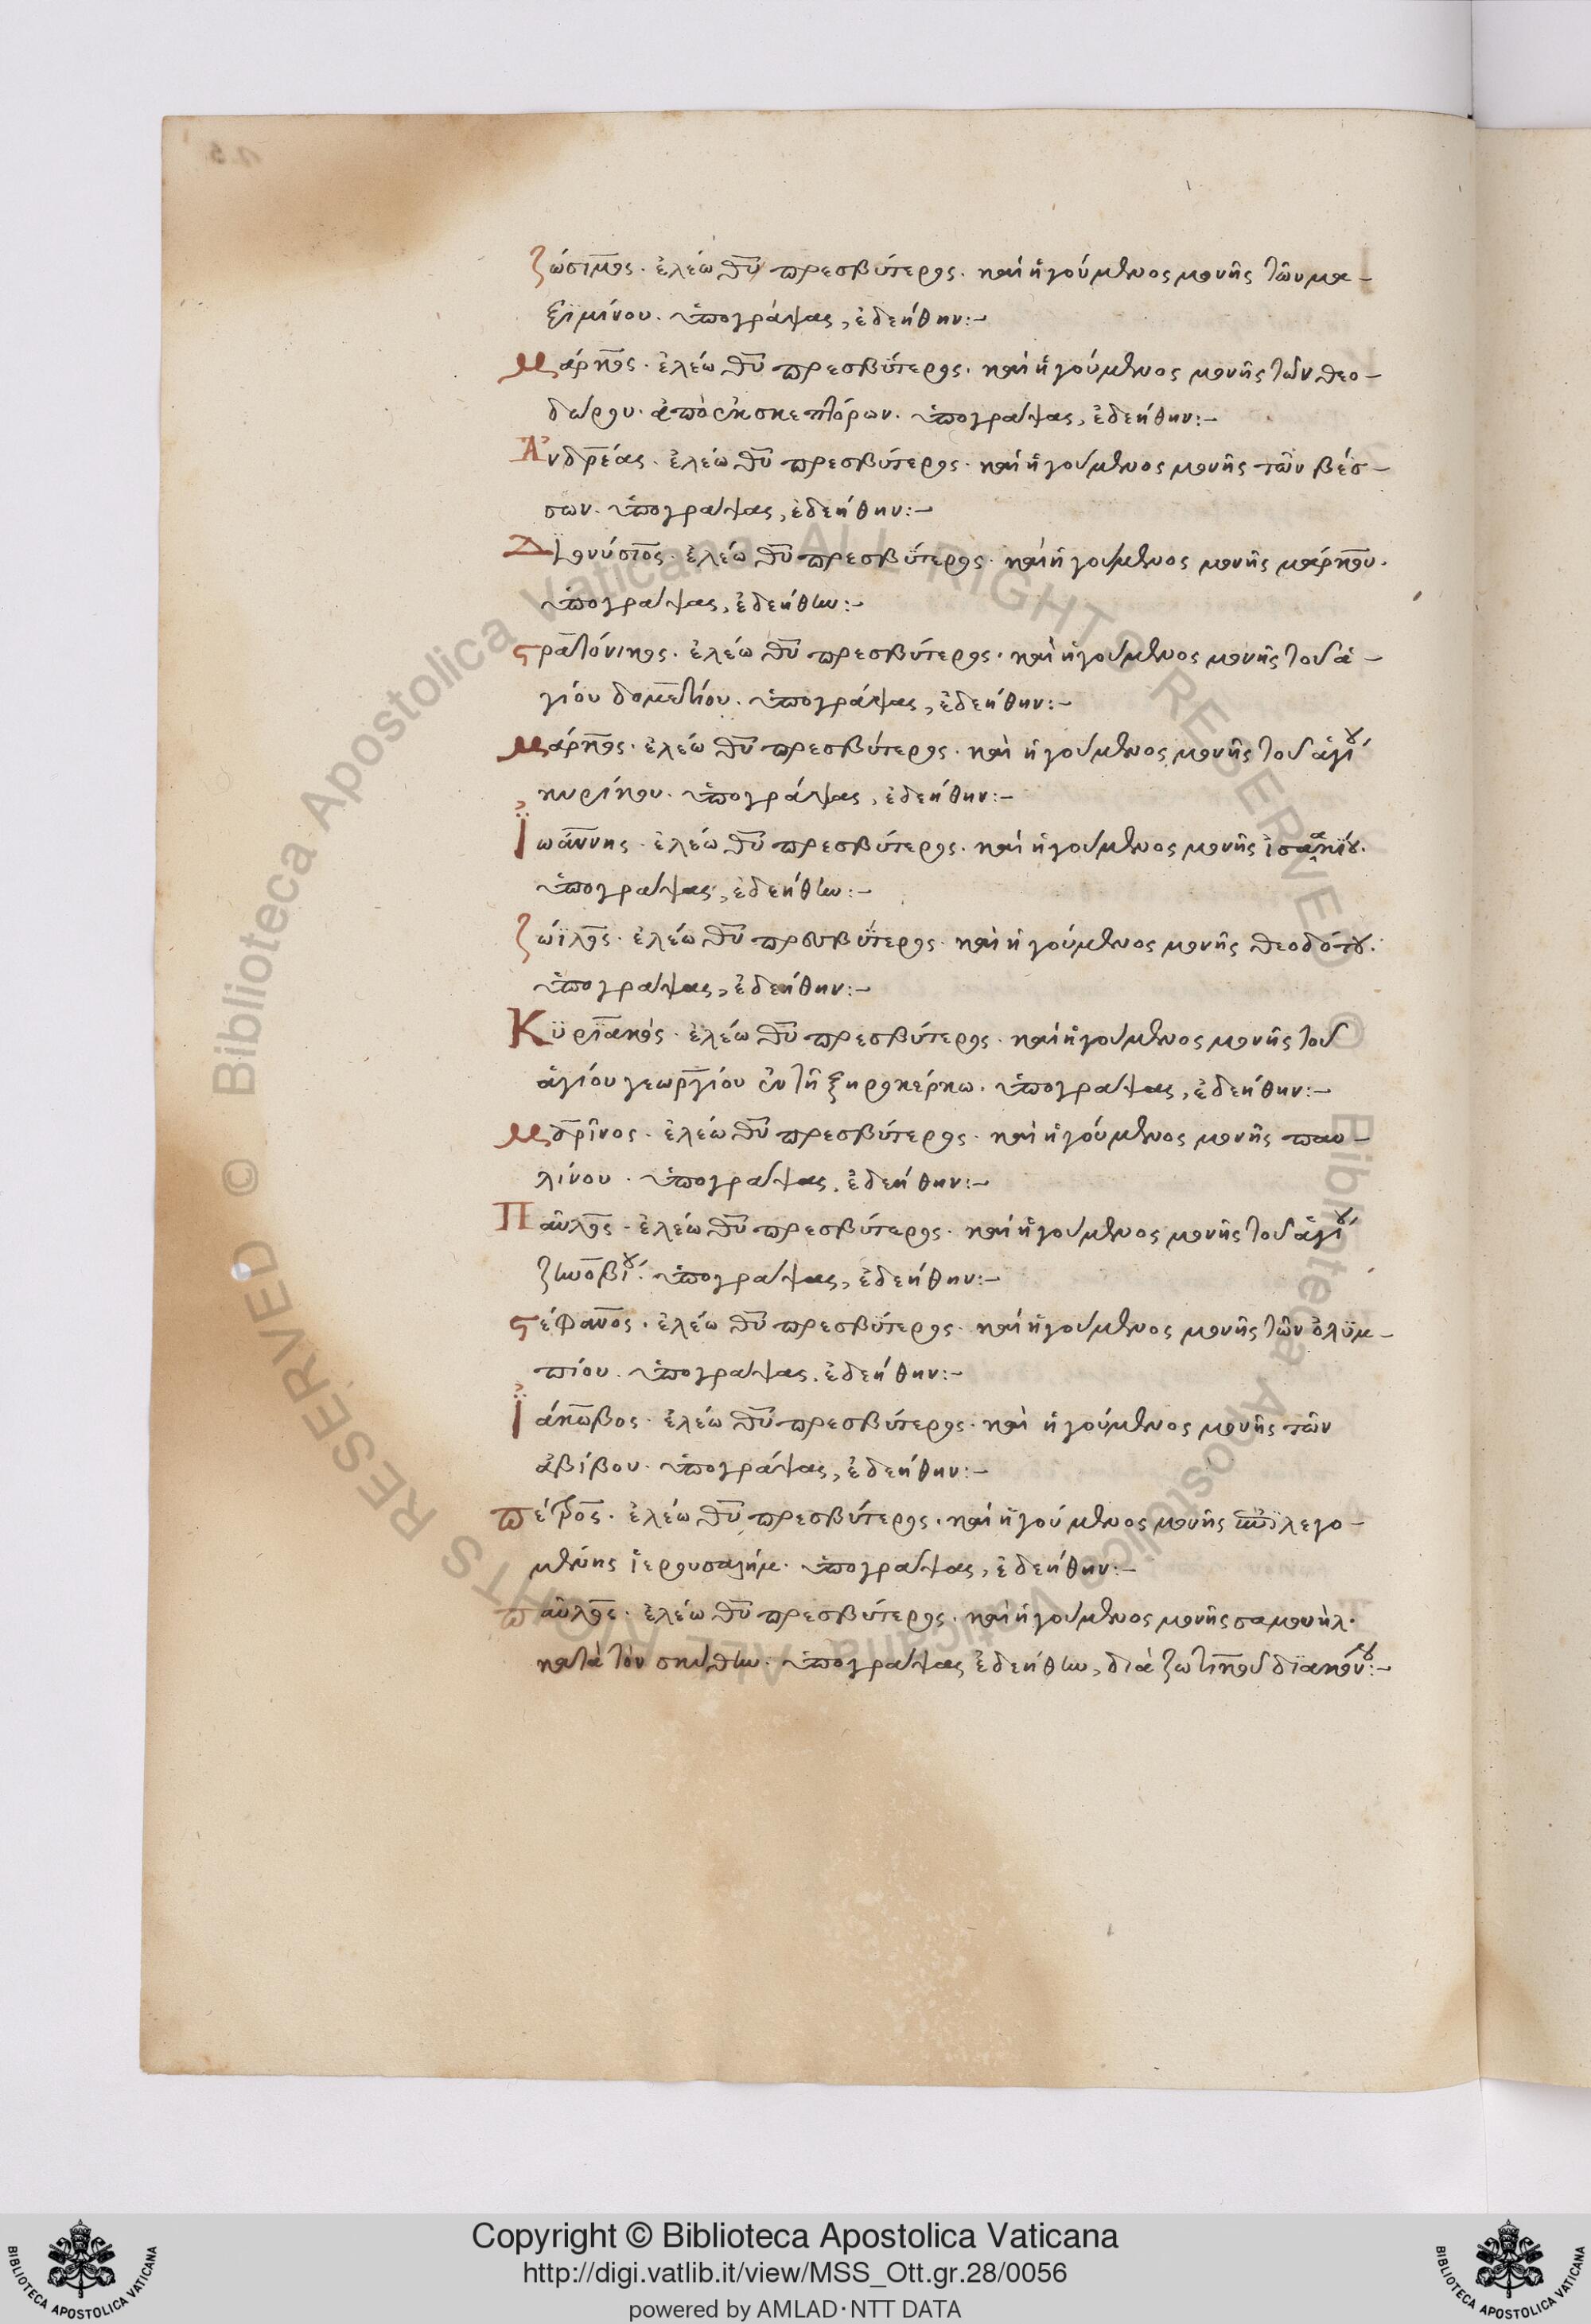 ζώσιμος· ἐλέω θῦ πρεσβύτερος· καὶ ἡγούμενος μονῆς τῶν μα-
ξιμίνου· ὑπογράψας, ἐδεήθην:-
Μάρκος· ἐλέω θῦ πρεσβύτερος· καὶ ἡγούμενος μονῆς τῶν θεο-
δώρου· ἀπὸ ἐκσκεπτόρων· ὑπογράψας, ἐδεήθην:-
Ἀνδρέας· ἐλέω θῦ πρεσβύτερος· καὶ ἡγούμενος μονῆς τῶν βέσ-
σων· ὑπογράψας, ἐδεήθην:-
Διονύσιος· ἐλέω θῦ πρεσβύτερος· καὶ ἡγούμενος μονῆς μάρκου·
ὑπογράψας, ἐδεήθην:-
ϛρατόνικος· ἐλέω θῦ πρεσβύτερος· καὶ ἡγούμενος μονῆς τοῦ ἁ-
γίου δομετίου· ὑπογράψας, ἐδεήθην:-
Μάρκος· ἐλέω θῦ πρεσβύτερος· καὶ ἡγούμενος μονῆς τοῦ ἁγίȣ
κυρίκου· ὑπογράψας, ἐδεήθην:-
Ἰωάννης· ἐλέω θῦ πρεσβύτερος· καὶ ἡγούμενος μονῆς ἰσαακίȣ·
ὑπογράψας, ἐδεήθην:-
ζώϊλος· ἐλέω θῦ πρεσβύτερος· καὶ ἡγούμενος μονῆς θεοδότȣ·
ὑπογράψας, ἐδεήθην:-
Κϋριακός· ἐλέω θῦ πρεσβύτερος· καὶ ἡγούμενος μονῆς τοῦ
ἁγίου γεωργίου ἐν τῆ ξηροκέρκω· ὑπογράψας, ἐδεήθην:-
πρεσβύτερος· καὶ ἡγούμενος μονῆς παυ-
λίνου· ὑπογράψας, ἐδεήθην:-
Παῦλος· ἐλέω θῦ πρεσβύτερος· καὶ ἡγούμενος μονῆς τοῦ ἁγίȣ
ζηνοβίȣ· ὑπογράψας, ἐδεήθην:-
ϛέφανος· ἐλέω θῦ πρεσβύτερος· καὶ ἡγούμενος μονῆς τῶν ὀλϋμ-
πίου· ὑπογράψας, ἐδεήθην:-
Ἰάκωβος· ἐλέω θῦ πρεσβύτερος· καὶ ἡγούμενος μονῆς τῶν
ἀβίβου· ὑπογράψας, ἐδεήθην:-
πέτρος· ἐλέω θῦ πρεσβύτερος· καὶ ἡγούμενος μονῆς ἐπιλεγο-
μένης ἱερουσαλήμ· ὑπογράψας, ἐδεήθην:-
παῦλος· ἐλέω θῦ πρεσβύτερος· καὶ ἡγούμενος μονῆς σαμουὴλ·
κατὰ τὸν σκύθην· ὑπογράψας ἐδεήθην, διὰ ζωτικοῦ διακόνȣ:-
Copyright © Biblioteca Apostolica Vaticana
http://digi.vatlib.it/view/MSS_Ott.gr.28/0056
powered by AMLAD·NTT DATA
© Biblioteca Apostolica Vaticana ALL RIGHTS RESERVED
© Biblioteca Apostolica Vaticana ALL RIGHTS RESERVED
BIBLIOTECA APOSTOLICA VATICANA
BIBLIOTECA APOSTOLICA VATICANA